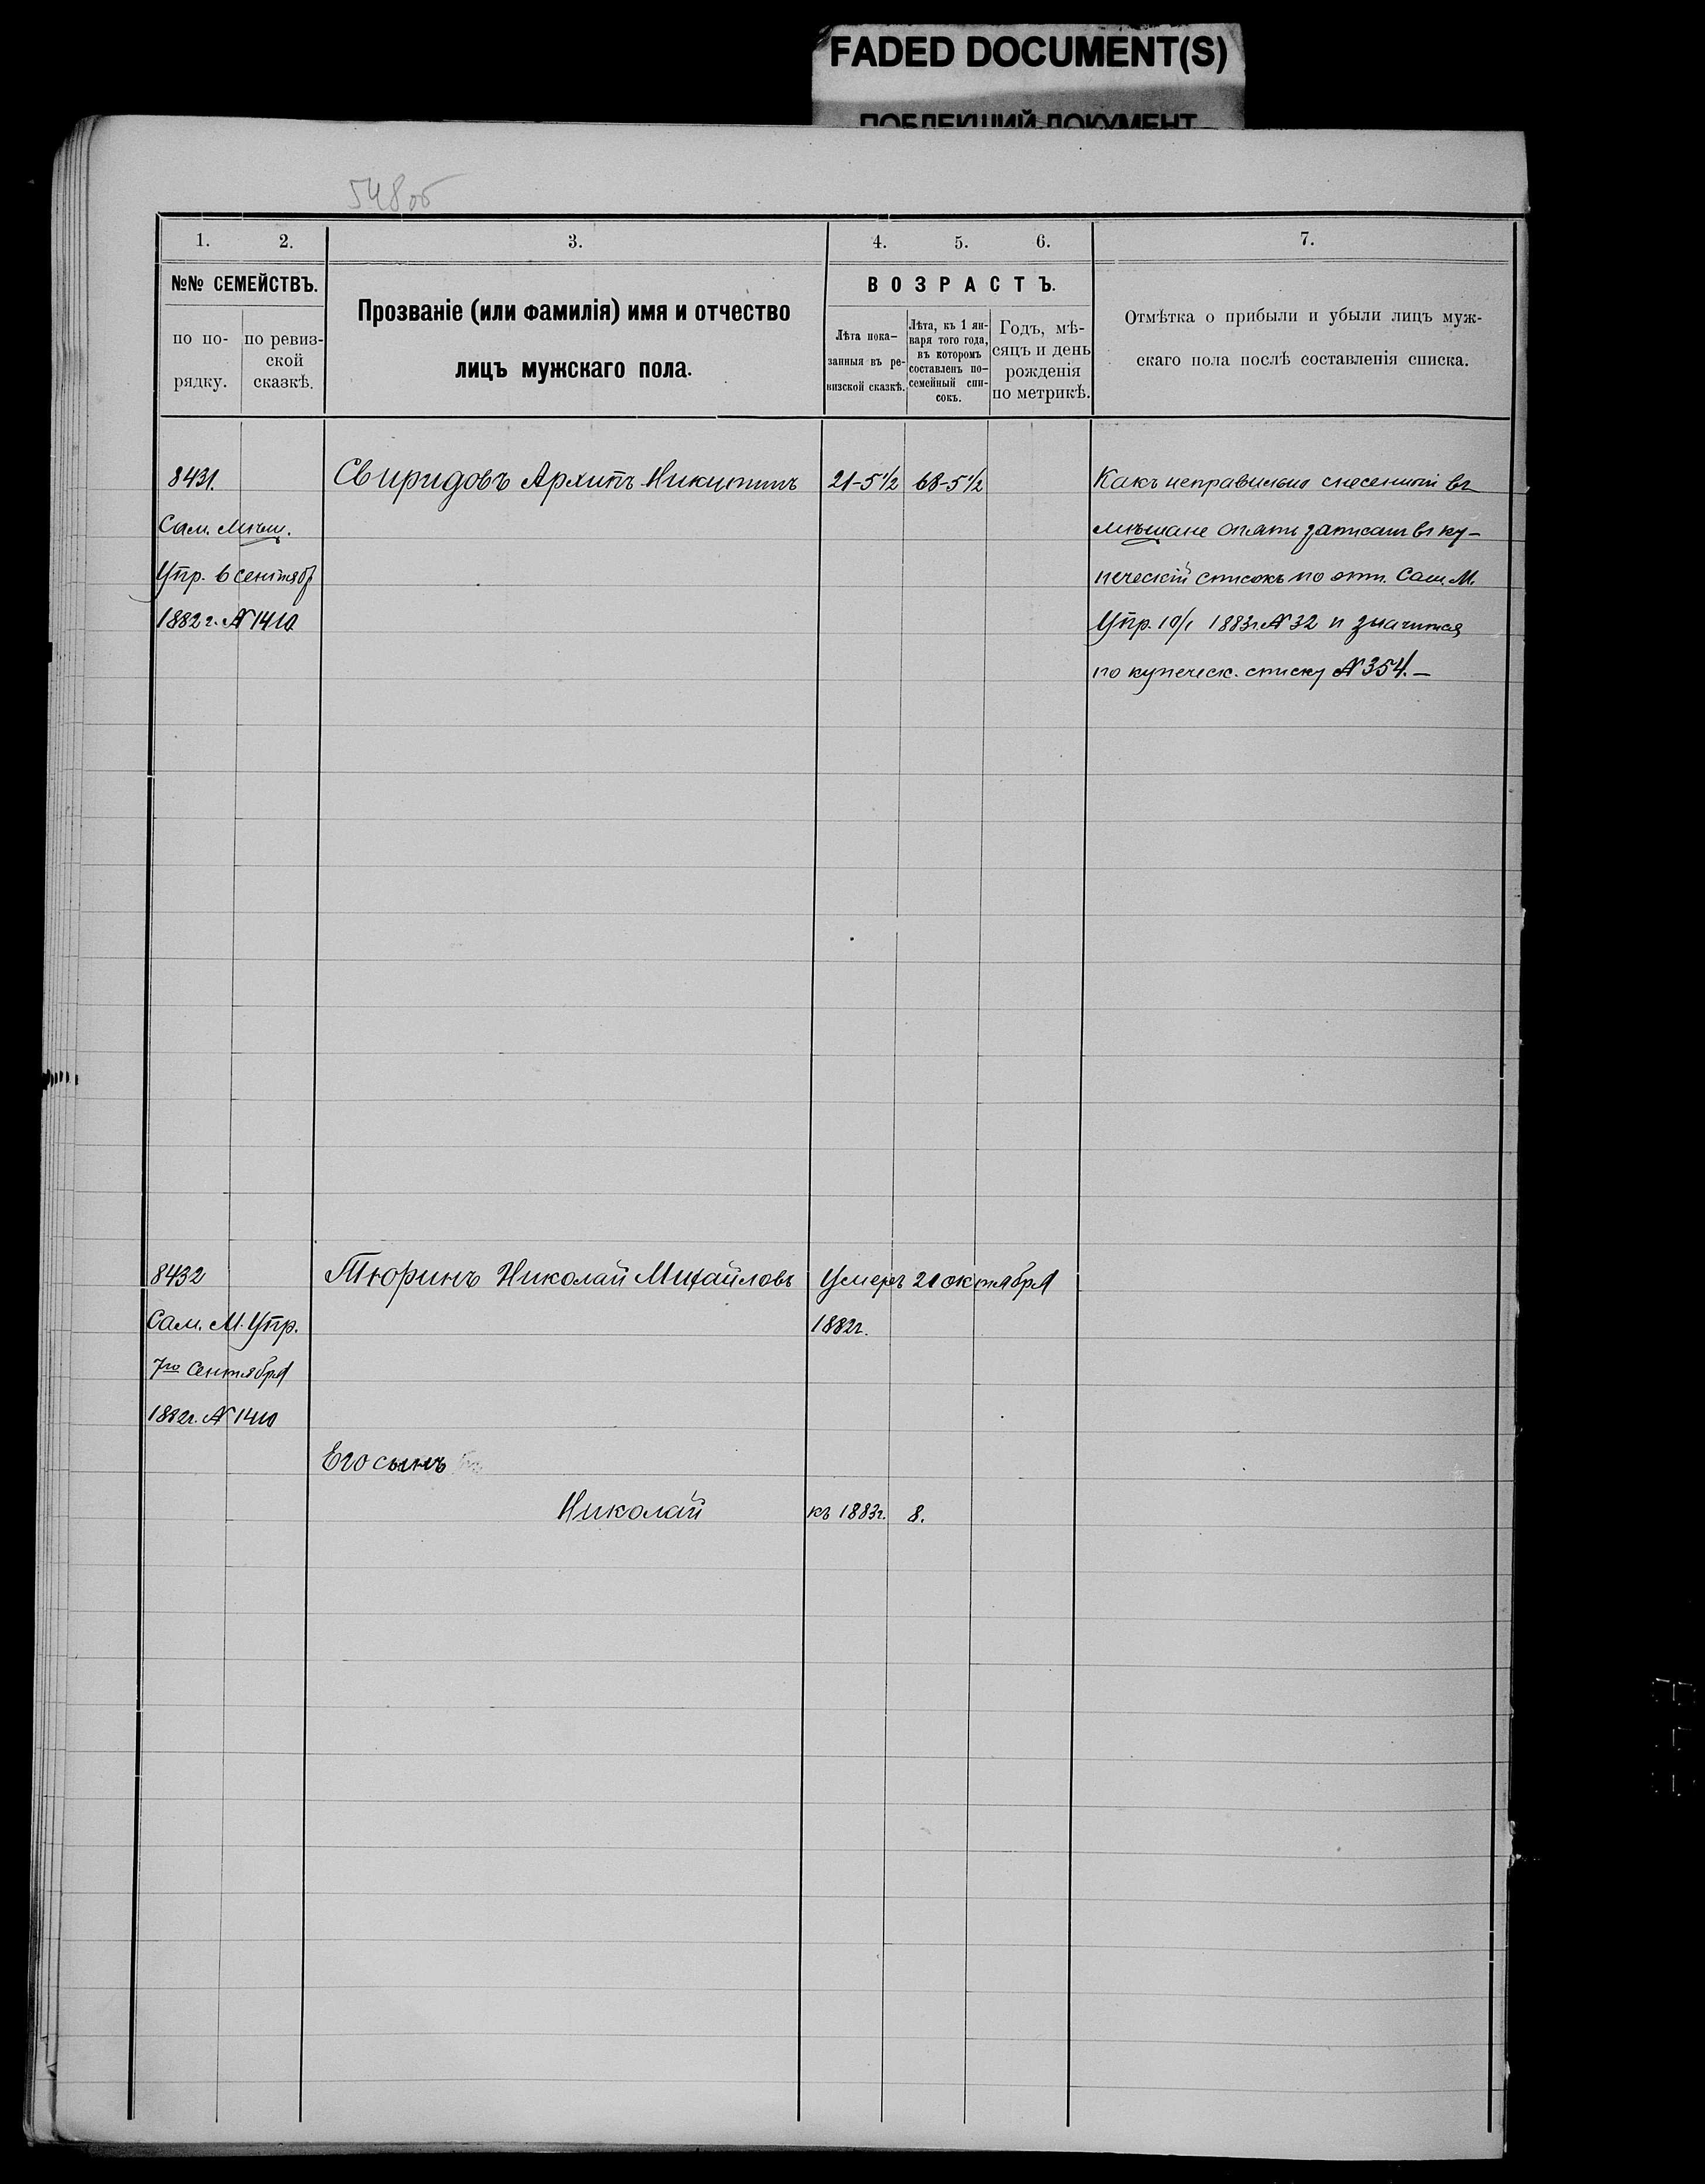 FADED DOCUMENT(S)
ПОБЛЕКШИЙ ДОКУМЕНТ
548об
1. 2. 3. 4. 5. 6. 7.
№№ СЕМЕЙСТВЪ.
по по-
рядку.
по ревиз-
ской
сказкѣ.
Прозваніе (или фамилія) имя и отчество
лицъ мужскаго пола.
ВОЗРАСТЪ.
Лѣта пока-
занныя въ ре-
визской сказкѣ.
Лѣта, къ 1 ян-
варя того года,
въ которомъ
составленъ по-
семейный спи-
сокъ.
Годъ, мѣ-
сяцъ и день
рожденія
по метрикѣ.
Отмѣтка о прибыли и убыли лицъ муж-
скаго пола послѣ составленія списка.
8431.
Сам. Мѣщ.
Упр. 6 сентяб
1882 г. № 1410
Свиридовъ Архипъ Никитинъ
21-5½ 68-5½
Какъ неправильно снесенный въ
мѣщане опять записанъ въ ку-
печескій списокъ по отн. Сам. М.
Упр. 10/1 1883г. № 32 и значится
по купеческ. списку № 354. —
8432
Сам. М. Упр.
7го Сентября
1882г. № 1410
Тюринъ Николай Михайловъ
Умеръ 21 октября
1882г.
Его сынъ
Николай
къ 1883г. 8.